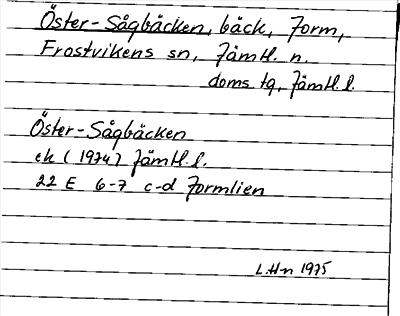 Öster-Sågbäcken, bäck, Form,
Frostvikens sn, Jämtl. n.
doms tg, Jämtl. l.
Öster-Sågbäcken
ek (1974) Jämtl. l.
22 E 6-7 c-d Formlien
L.Hn 1975